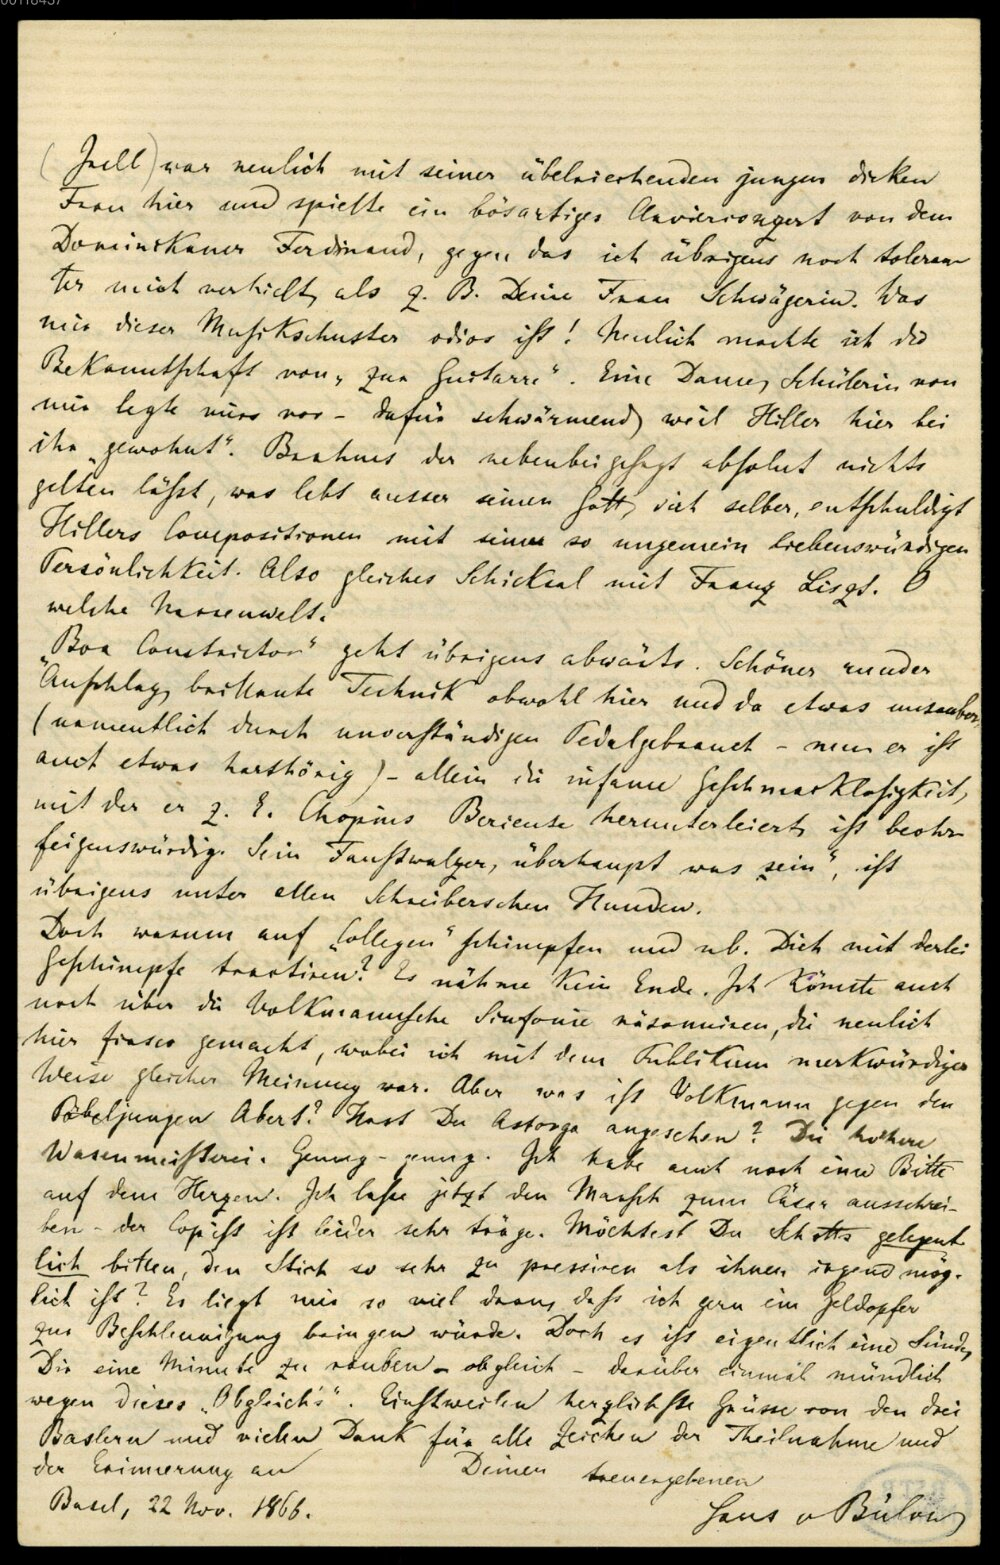 00118437
(Jaell) war neulich mit seiner übelriechenden jungen dicken
Frau hier und spielte ein bösartiges Clavierconzert von dem
Dominikaner Ferdinand, gegen das ich übrigens noch toleran-
ter mich verhielt, als z. B. Deine Frau Schwägerin. Was
mir dieser Musikschuster odios ist! Neulich machte ich die
Bekanntschaft von „zur Guitarre“. Eine Dame, Schülerin von
mir legte mirs vor – dafür schwärmend, weil Hiller hier bei
ihr „gewohnt“. Brahms der nebenbeigesagt absolut nichts
gelten läßt, was lebt ausser seinen Gott, sich selber, entschuldigt
Hillers Compositionen mit seiner so ungemein liebenswürdigen
Persönlichkeit. Also gleiches Schicksal mit Franz Liszt. O
welche Narrenwelt.
„Boa Constrictor“ geht übrigens abwärts. Schöner runder
Anschlag, brillante Technik obwohl hier und da etwas unsauber,
(namentlich durch unverständigen Pedalgebrauch – nun er ist
auch etwas harthörig) – allein die infame Geschmacklosigkeit,
mit der er z. E. Chopins Berceuse herunterleiert, ist beohr-
feigenswürdig. Sein Faustwalzer, überhaupt was „sein“, ist
übrigens unter allen Schreiberschen Hunden.
Doch warum auf „Collegen“ schimpfen und nb. Dich mit derlei
Geschimpfe tractiren? Es nähme kein Ende. Ich könnte auch
noch über die Volkmannsche Sinfonie räsonniren, die neulich
hier fiasco gemacht, wobei ich mit dem Publikum merkwürdiger
Weise gleicher Meinung war. Aber was ist Volkmann gegen den
Pöbeljungen Abert? Hast Du Astorga angesehen? Die höhere
Wasenmeisterei. Genug – genug. Ich habe auch noch eine Bitte
auf dem Herzen. Ich lasse jetzt den Marsch zum Cäsar ausschrei-
ben – der Copist ist leider sehr träge. Möchtest Du Schotts gelegent-
lich bitten, den Stich so sehr zu pressiren als ihnen irgend mög-
lich ist? Es liegt mir so viel daran, daß ich gern ein Geldopfer
zur Beschleunigung bringen würde. Doch es ist eigentlich eine Sünde,
Dir eine Minute zu rauben – obgleich – darüber einmal mündlich
wegen dieses „Obgleich's“. Einstweilen herzlichste Grüsse von den drei
Baslern und vielen Dank für alle Zeichen der Theilnahme und
der Erinnerung an Deinen treuergebenen
Basel, 22 Nov. 1866. Hans v Bülow